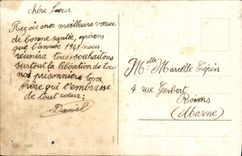 chère Soeur
Reçois mes meilleurs vœux
de bonne santé, espérons
que l'année 1941 nous
réunira tous. souhaitons
surtout la libération de tous
nos prisonniers ton
frère qui t'embrasse
de tout cœur.
Daniel
Mlle Marcelle Pépin
4 rue Gerbert
Reims
(Marne)